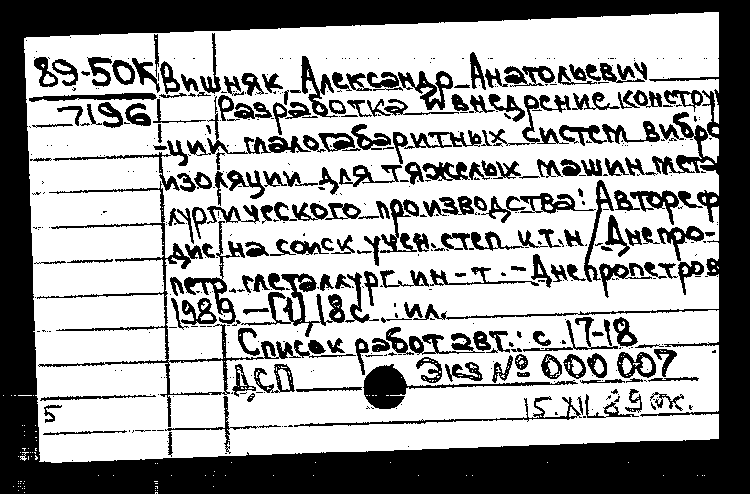 89-50К Вишняк, Александр Анатольевич
7196 Разработка и внедрение констру
-ций малогабаритных систем вибро
изоляции для тяжелых машин мета
лургического производства: Автореф
дис. на соиск. учен. степ. к.т.н / Днепро-
петр. металлург. ин-т. - Днепропетров
1989 - [1], 18 с. : ил.
Список работ авт.: с. 17-18
ДСП Экз № 000 007
5 15.XII.89 ок.